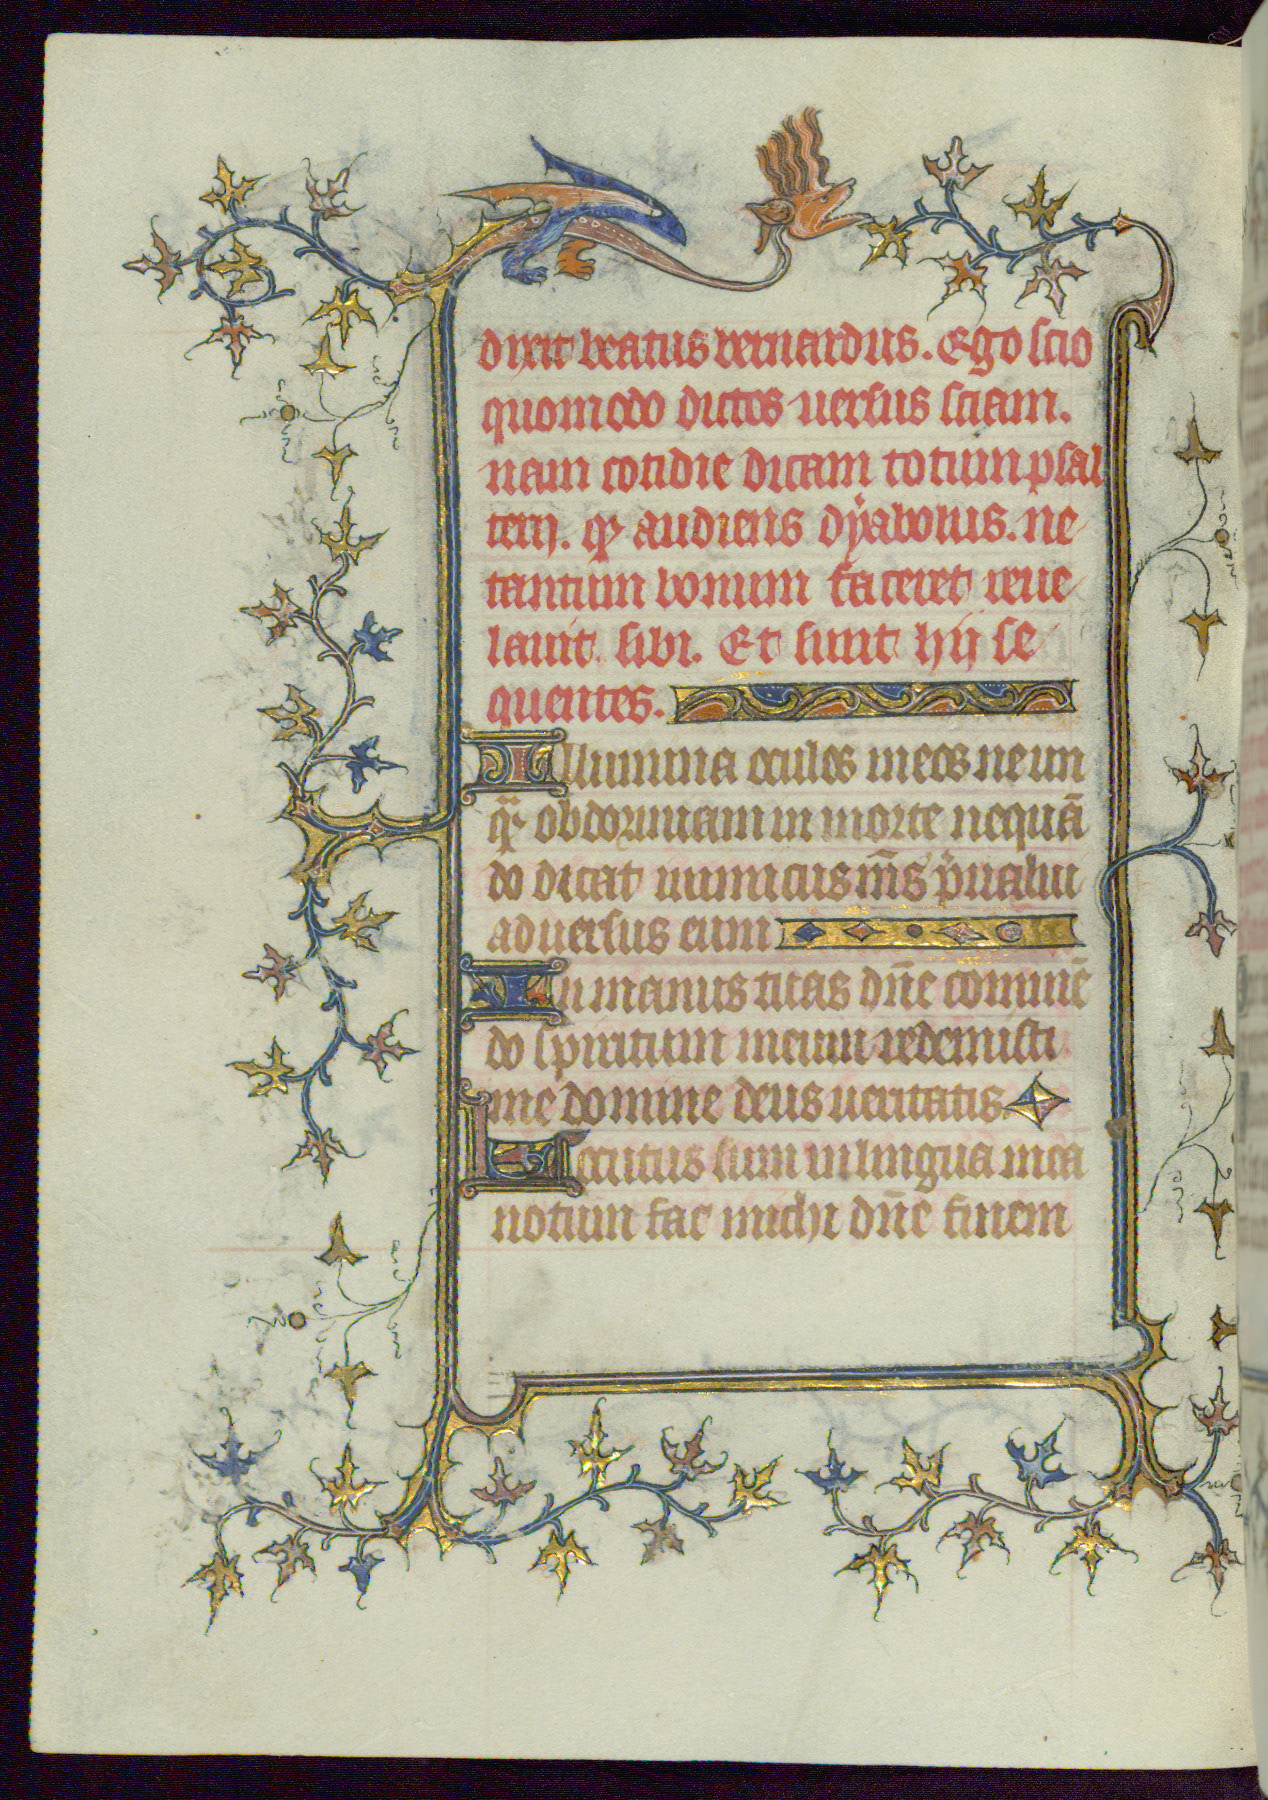 dixit beatus bernardus. Ego scio
quomodo dictos uersus sciam.
nam cotidie dicam totum psal
teriū. qᷓ audiens dyabolus. ne
tantum bonum faceret reue
lauit sibi. Et sunt hij se
quentes.
Illumina oculos meos ne un
qᷓ obdormiam in morte nequā
do dicat inimicus mīs p̄ualui
aduersus eum
In manus tuas dn̄e comme
do spiritum meum redemisti
me domine deus ueritatis
Locutus sum in lingua mea
notum fac michi dn̄e finem